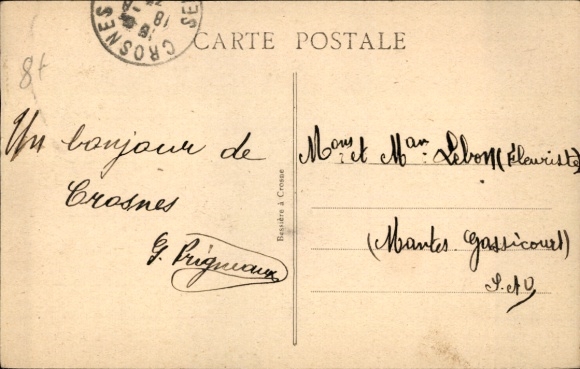 CROSNES
18
CARTE POSTALE
8f
Un bonjour de
Crosnes
G. Prigneaux
Bessière à Crosne
Mons et Mam Lebon (fleuriste)
(Mantes Gassicourt)
S. et O